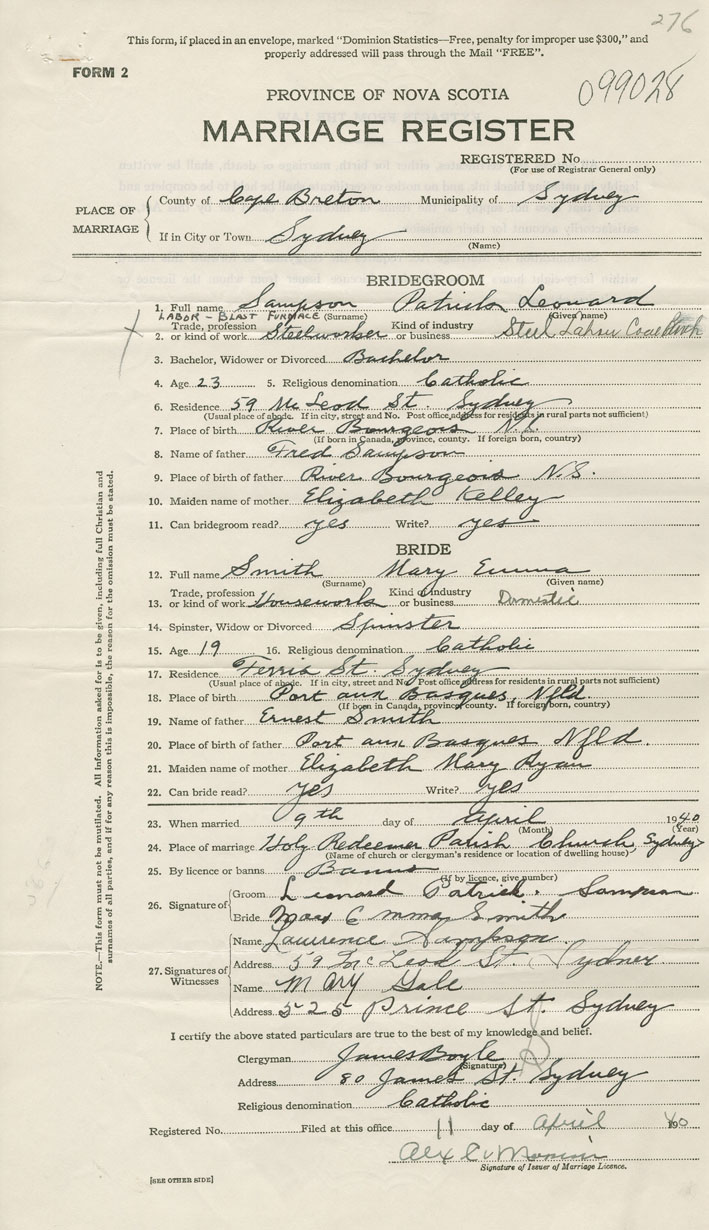 276
This form, if placed in an envelope, marked "Dominion Statistics—Free, penalty for improper use $300," and
properly addressed will pass through the Mail "FREE".
FORM 2
099028
PROVINCE OF NOVA SCOTIA
MARRIAGE REGISTER
REGISTERED No.
(For use of Registrar General only)
PLACE OF MARRIAGE
County of Cape Breton Municipality of Sydney
If in City or Town Sydney
(Name)
BRIDEGROOM
1. Full name Sampson Patrick Leonard
LABOR - BLAST FURNACE (Surname) (Given name)
Trade, profession Kind of industry
2. or kind of work Steelworker or business Steel
3. Bachelor, Widower or Divorced Bachelor
4. Age 23 5. Religious denomination Catholic
6. Residence 59 McLeod St. Sydney
(Usual place of abode. If in city, street and No. Post office address for residents in rural parts not sufficient)
7. Place of birth River Bourgeois N.S.
(If born in Canada, province, county. If foreign born, country)
8. Name of father Fred Sampson
9. Place of birth of father River Bourgeois N.S.
10. Maiden name of mother Elizabeth Kelley
11. Can bridegroom read? yes Write? yes
BRIDE
12. Full name Smith Mary Emma
(Surname) (Given name)
Trade, profession Kind of industry
13. or kind of work Housework or business Domestic
14. Spinster, Widow or Divorced Spinster
15. Age 19 16. Religious denomination Catholic
17. Residence Ferris St. Sydney
(Usual place of abode. If in city, street and No. Post office address for residents in rural parts not sufficient)
18. Place of birth Port aux Basques, Nfld.
(If born in Canada, province, county. If foreign born, country)
19. Name of father Ernest Smith
20. Place of birth of father Port aux Basques Nfld.
21. Maiden name of mother Elizabeth Mary Ryan
22. Can bride read? yes Write? yes
23. When married 9th day of April 1940
(Month) (Year)
24. Place of marriage Holy Redeemer Parish Church, Sydney
(Name of church or clergyman's residence or location of dwelling house)
25. By licence or banns Banns
(If by licence, give number)
26. Signature of
Groom Leonard Patrick. Sampson
Bride Mary Emma Smith
27. Signatures of Witnesses
Name Lawrence Sampson
Address 59 McLeod St. Sydney
Name Mary Gale
Address 525 Prince St. Sydney
I certify the above stated particulars are true to the best of my knowledge and belief.
Clergyman James Boyle
(Signature)
Address 80 James St. Sydney
Religious denomination Catholic
Registered No. Filed at this office 11 day of April 1940
Alex
Signature of Issuer of Marriage Licence.
[SEE OTHER SIDE]
NOTE.—This form must not be mutilated. All information asked for is to be given, including full Christian and
surnames of all parties, and if for any reason this is impossible, the reason for the omission must be stated.